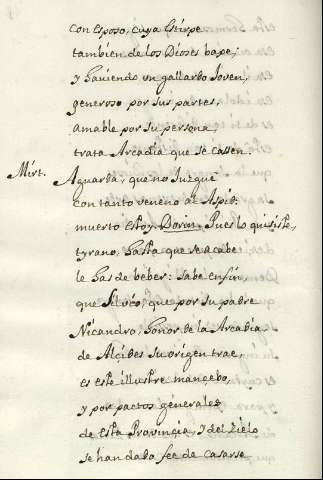 con esposo, cuya Estirpe
tambien de los Dioses baxe;
y haviendo un gallardo Joven,
generoso por sus partes,
amable por su persona,
trata Arcadia que se cassen.
Mirt. Aguarda, que no Juzguè
con tanto veneno al Aspid:
muerto estoy. Dorin. Pues lo quisiste,
tyrano, hasta que se acabe
le has de beber: sabe en fin,
que Silvio, que por su padre
Nicandro, honor de la Arcadia
de Alcides su origen trae,
es este illustre mancebo,
y por pactos generales
de esta Provincia, y del Zielo
se han dado fee de casarse.